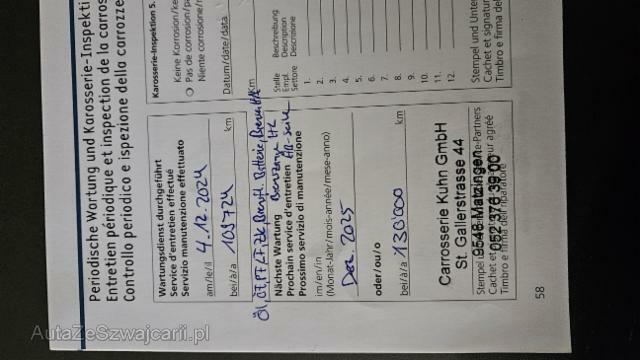 Periodische Wartung und Karosserie-Inspekti
Entretien périodique et inspection de la carros
Controllo periodico e ispezione della carrozze
Wartungsdienst durchgeführt
Service d'entretien effectué
Servizio manutenzione effettuato
am/le/il 4.12.2024
bei/à/a 109724 km
Nächste Wartung
Prochain service d'entretien
Prossimo servizio di manutenzione
im/en/in
(Monat-Jahr/mois-année/mese-anno)
Dez. 2025
oder/ou/o
bei/à/a 130'000 km
Carrosserie Kuhn GmbH
St. Gallerstrasse 44
9548 Matzingen
052 376 39 00
Timbro e firma dell'riparatore
Karosserie-Inspektion 5.
Keine Korrosion/ke
Pas de corrosion/pas
Niente corrosione/n
Datum/date/data
Km
Stelle Beschreibung
Empl. Description
Settore Descrizione
1.
2.
3.
4.
5.
6.
7.
8.
9.
10.
11.
12.
Stempel und Unter
Cachet et signatur
Timbro e firma del
58
AutaZeSzwajcarii.pl